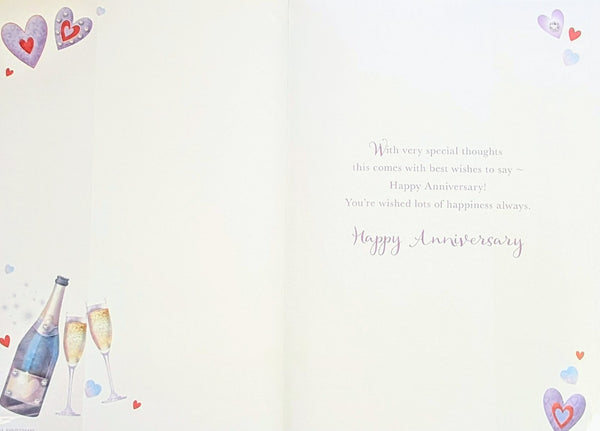 With very special thoughts
this comes with best wishes to say ~
Happy Anniversary!
You're wished lots of happiness always.
Happy Anniversary